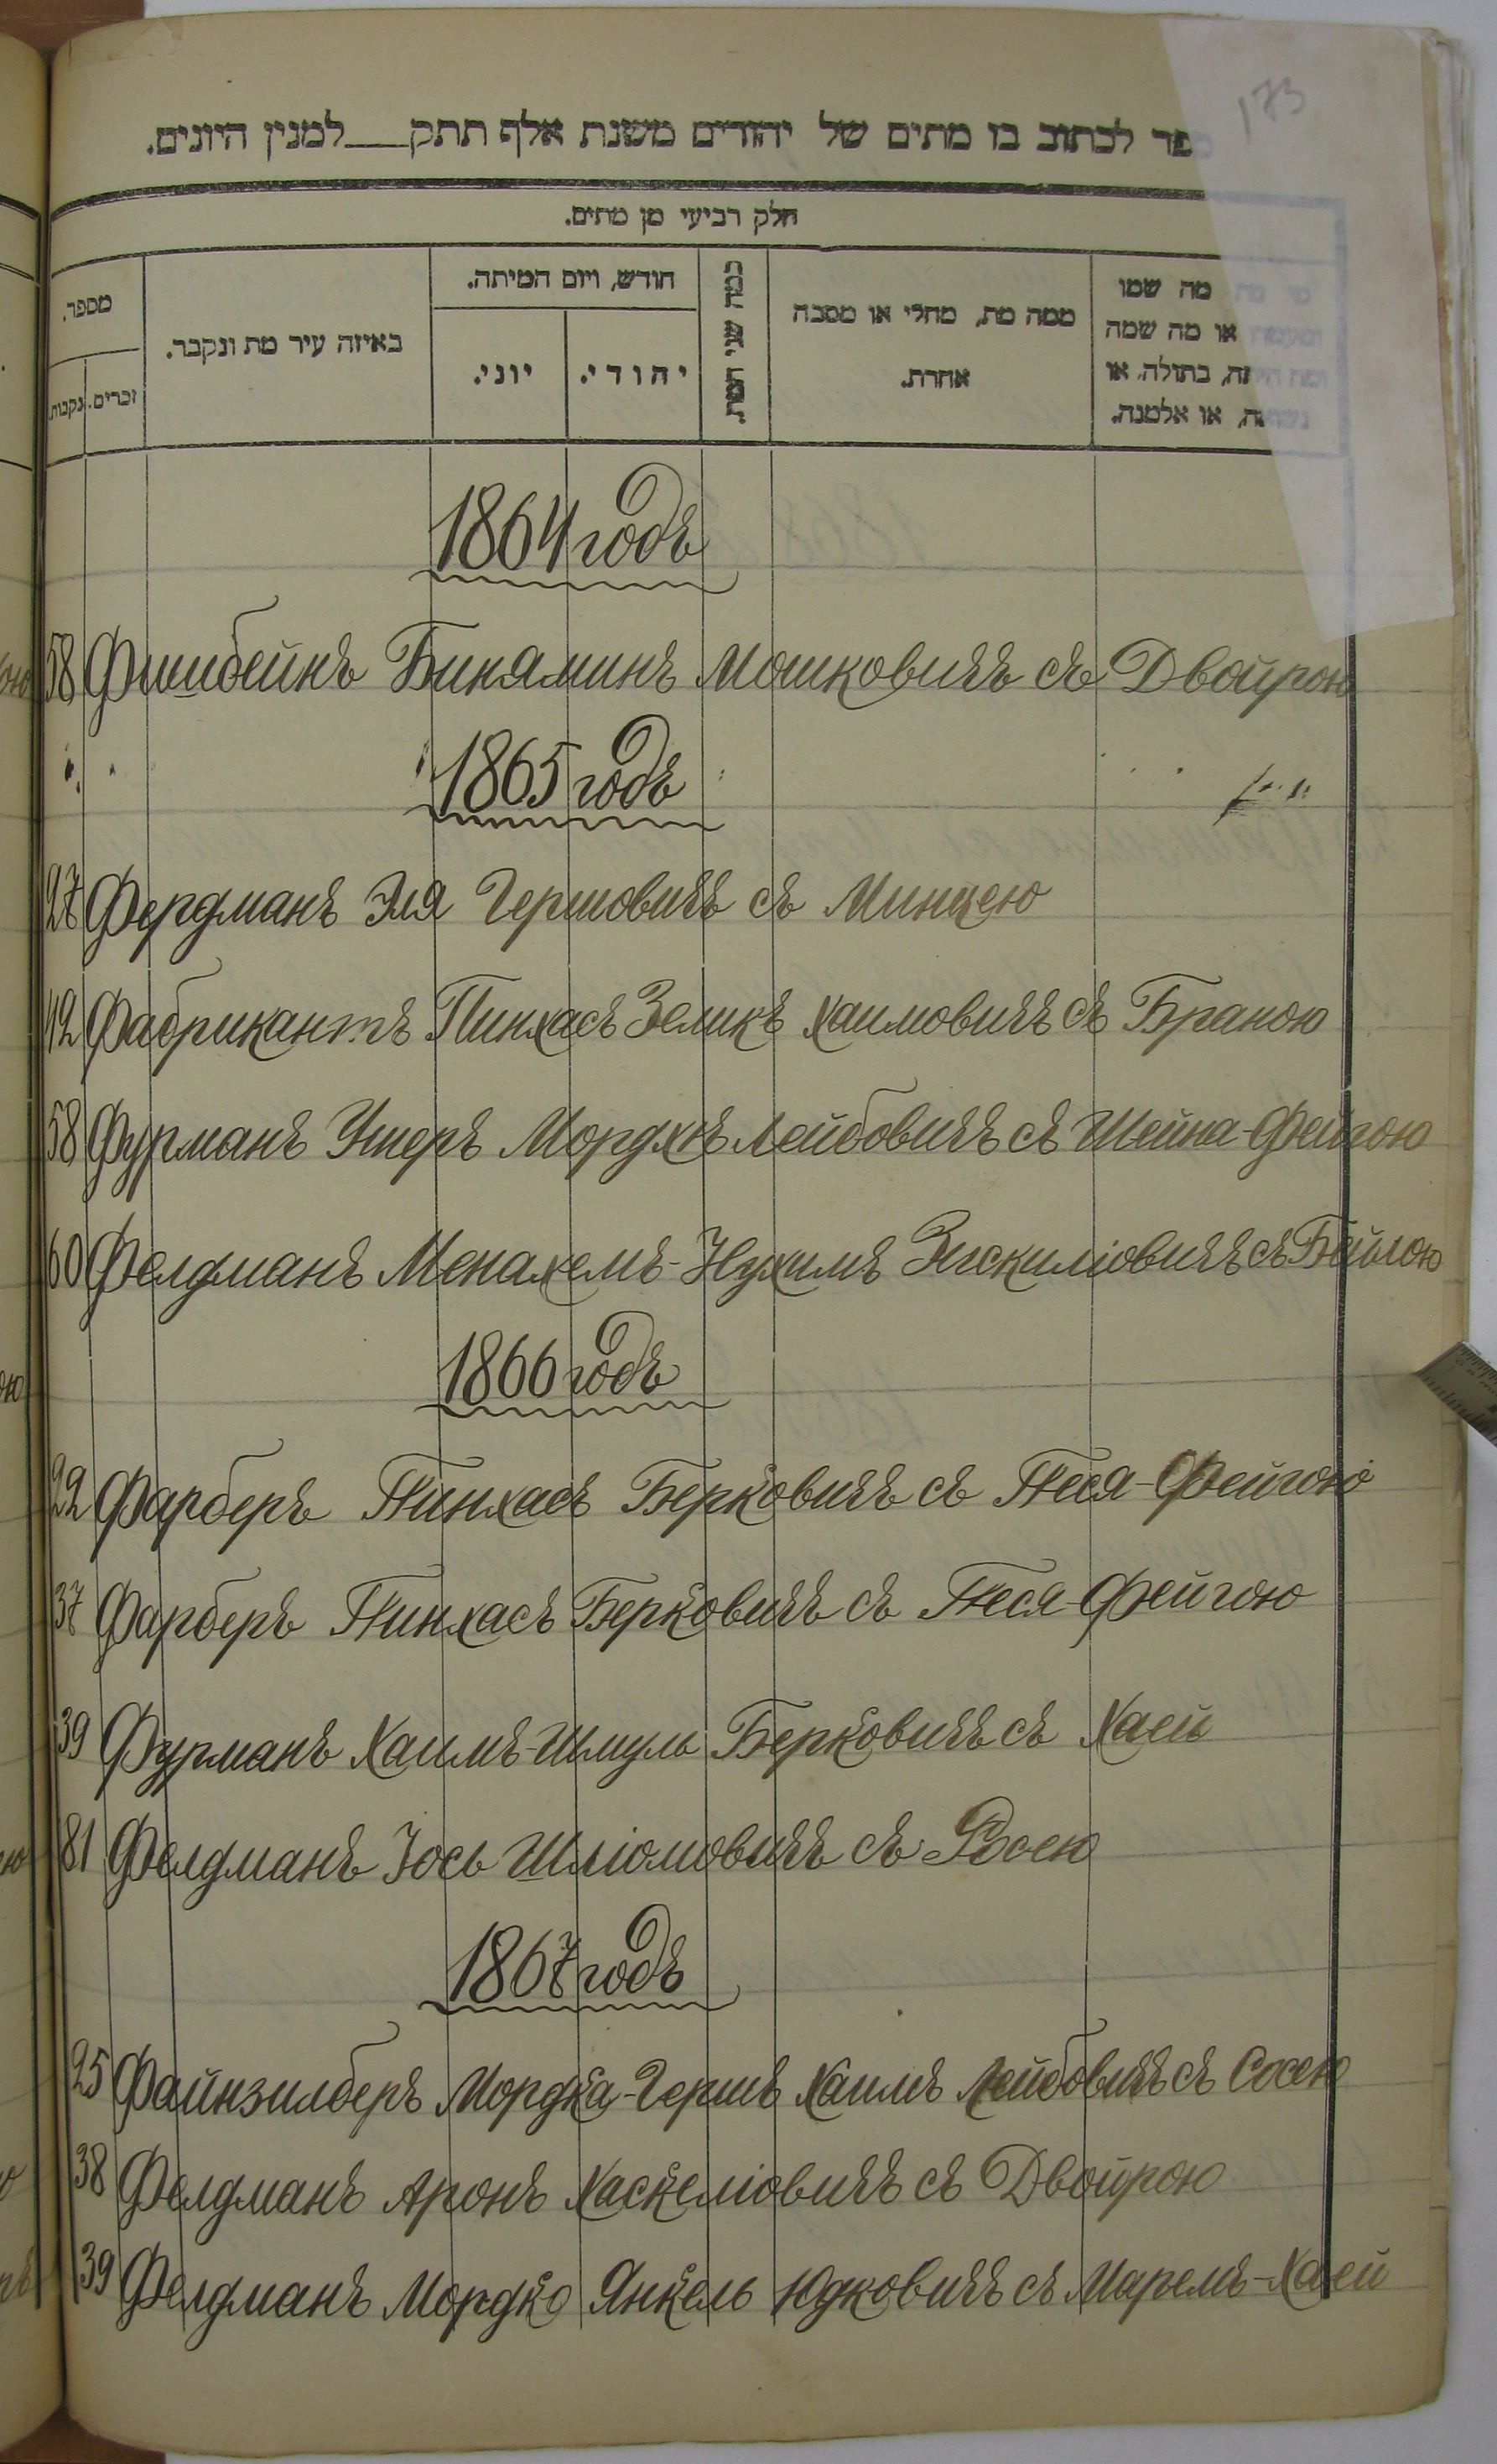 173
ספר לכתוב בו מתים של יהודים משנת אלף תתק למנין היונים.
חלק רביעי מן מתים.
מספר.
זכרים. נקבות
באיזה עיר מת ונקבר.
חודש, ויום המיתה.
יהודי. יוני.
כמה שני המת.
ממה מת, מחלי או מסבה
אחרת.
מי מת מה שמו
או מה שמה
בתולה, או
או אלמנה.
1864 годъ
58 Фишбейнъ Биняминъ Мошковичъ съ Двойрою
1865 годъ
27 Фердманъ Эля Гершовичъ съ Минцею
42 Фабрикантъ Пинхасъ Зеликъ Хаимовичъ съ Браною
58 Фурманъ Ушеръ Мордхъ Лейбовичъ съ Шейна-Фейгою
60 Фелдманъ Менахемъ-Нухимъ съ Бейлою
1866 годъ
22 Фарберъ Пинхасъ Берковичъ съ Песя-Фейгою
37 Фарберъ Пинхасъ Берковичъ съ Песя-Фейгою
39 Фурманъ Хаимъ-Шмуль Берковичъ съ Хаей
81 Фелдманъ Іось Шліомовичъ съ Росею
1867 годъ
25 Файнзилберъ Мордка-Гершъ Хаимъ Лейбовичъ съ Сосею
38 Фелдманъ Аронъ Хаскеліовичъ съ Двойрою
39 Фелдманъ Мордко Янкель Юдковичъ съ Маремъ-Хаей